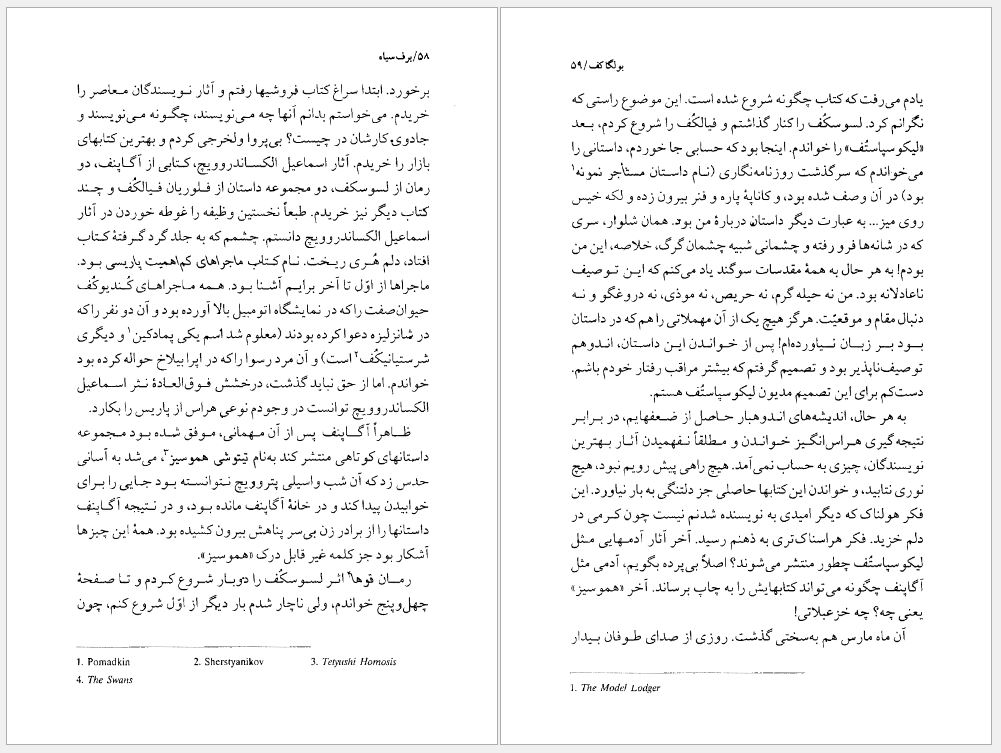 ۵۸/برف سیاه
برخورد. ابتدا سراغ کتاب فروشیها رفتم و آثار نویسندگان معاصر را
خریدم. می‌خواستم بدانم آنها چه می‌نویسند، چگونه می‌نویسند و
جادوی کارشان در چیست؟ بی‌پروا ولخرجی کردم و بهترین کتابهای
بازار را خریدم. آثار اسماعیل الکساندروویچ، کتابی از آگاپنف، دو
رمان از لسوسکف، دو مجموعه داستان از فلوریان فیالکُف و چند
کتاب دیگر نیز خریدم. طبعاً نخستین وظیفه را غوطه خوردن در آثار
اسماعیل الکساندروویچ دانستم. چشمم که به جلد گرد گرفتهٔ کتاب
افتاد، دلم هُری ریخت. نام کتاب ماجراهای کم‌اهمیت پاریسی بود.
ماجراها از اوّل تا آخر برایم آشنا بود. همه ماجراهای کُندیوکُف
حیوان‌صفت را که در نمایشگاه اتومبیل بالا آورده بود و آن دو نفر را که
در شانزلیزه دعوا کرده بودند (معلوم شد اسم یکی پمادکین۱ و دیگری
شرستیانیکُف۲ است) و آن مرد رسوا را که در اپرا بیلاخ حواله کرده بود
خواندم. اما از حق نباید گذشت، درخشش فوق‌العادهٔ نثر اسماعیل
الکساندروویچ توانست در وجودم نوعی هراس از پاریس را بکارد.
ظاهراً آگاپنف پس از آن مهمانی، موفق شده بود مجموعه
داستانهای کوتاهی منتشر کند به‌نام تیتوشی هموسیز۳، می‌شد به آسانی
حدس زد که آن شب واسیلی پتروویچ نتوانسته بود جایی را برای
خوابیدن پیدا کند و در خانهٔ آگاپنف مانده بود، و در نتیجه آگاپنف
داستانها را از برادر زن بی‌سر پناهش بیرون کشیده بود. همهٔ این چیزها
آشکار بود جز کلمه غیر قابل درک «هموسیز».
رمان قوها۴ اثر لسوسکُف را دوبار شروع کردم و تا صفحهٔ
چهل‌وپنج خواندم، ولی ناچار شدم بار دیگر از اوّل شروع کنم، چون
1. Pomadkin 2. Sherstyanikov 3. Tetyushi Homosis
4. The Swans
بولگاکف/۵۹
یادم می‌رفت که کتاب چگونه شروع شده است. این موضوع راستی که
نگرانم کرد. لسوسکُف را کنار گذاشتم و فیالکُف را شروع کردم، بعد
«لیکوسپاستُف» را خواندم. اینجا بود که حسابی جا خوردم، داستانی را
می‌خواندم که سرگذشت روزنامه‌نگاری (نام داستان مستأجر نمونه۱
بود) در آن وصف شده بود، و کاناپهٔ پاره و فنر بیرون زده و لکه خیس
روی میز... به عبارت دیگر داستان دربارهٔ من بود. همان شلوار، سری
که در شانه‌ها فرو رفته و چشمانی شبیه چشمان گرگ، خلاصه، این من
بودم! به هر حال به همهٔ مقدسات سوگند یاد می‌کنم که این توصیف
ناعادلانه بود. من نه حیله گرم، نه حریص، نه موذی، نه دروغگو و نه
دنبال مقام و موقعیّت. هرگز هیچ یک از آن مهملاتی را هم که در داستان
بود بر زبان نیاورده‌ام! پس از خواندن این داستان، اندوهم
توصیف‌ناپذیر بود و تصمیم گرفتم که بیشتر مراقب رفتار خودم باشم.
دست‌کم برای این تصمیم مدیون لیکوسپاستُف هستم.
به هر حال، اندیشه‌های اندوهبار حاصل از ضعفهایم، در برابر
نتیجه‌گیری هراس‌انگیز خواندن و مطلقاً نفهمیدن آثار بهترین
نویسندگان، چیزی به حساب نمی‌آمد. هیچ راهی پیش رویم نبود، هیچ
نوری نتابید، و خواندن این کتابها حاصلی جز دلتنگی به بار نیاورد. این
فکر هولناک که دیگر امیدی به نویسنده شدنم نیست چون کرمی در
دلم خزید. فکر هراسناک‌تری به ذهنم رسید. آخر آثار آدمهایی مثل
لیکوسپاستُف چطور منتشر می‌شوند؟ اصلاً بی‌پرده بگویم، آدمی مثل
آگاپنف چگونه می‌تواند کتابهایش را به چاپ برساند. آخر «هموسیز»
یعنی چه؟ چه خزعبلاتی!
آن ماه مارس هم به‌سختی گذشت. روزی از صدای طوفان بیدار
1. The Model Lodger